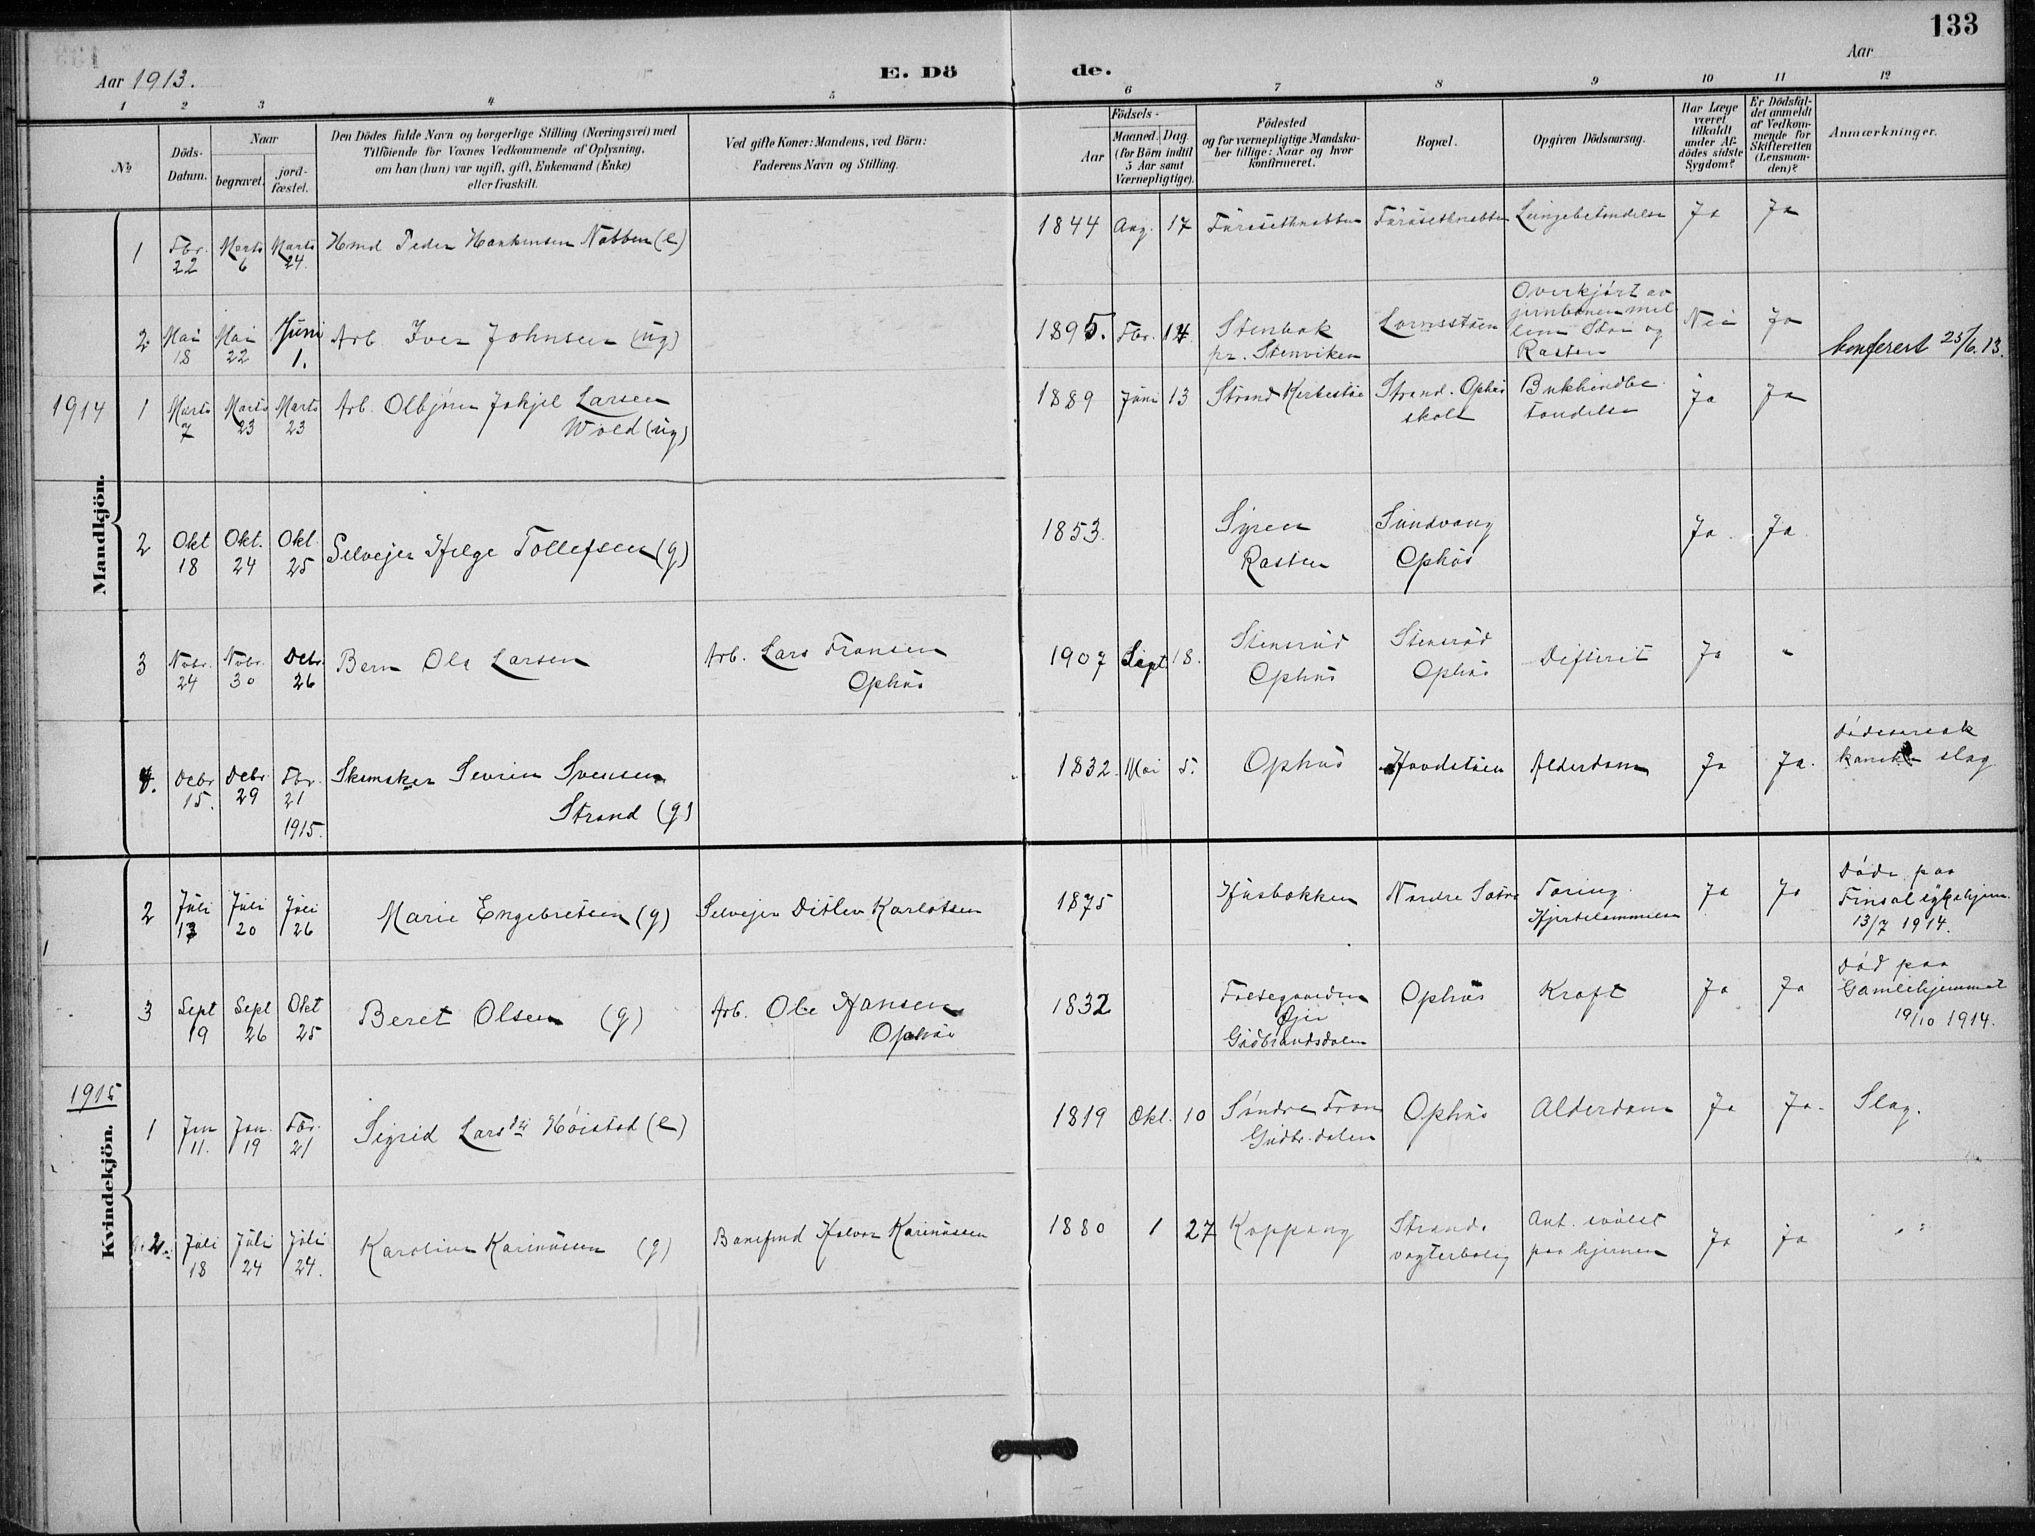 133
Aar 1913.
E. Dö de.
Aar
1 2 3 4 5 6 7 8 9 10 11 12
No
Döds-Datum.
Naar
begravet.
jord-fæstet.
Den Dödes fulde Navn og borgerlige Stilling (Næringsvei) med
Tilföiende for Voxnes Vedkommende af Oplysning,
om han (hun) var ugift, gift, Enkemand (Enke)
eller fraskilt.
Ved gifte Koner: Mandens, ved Börn:
Faderens Navn og Stilling.
Födsels-
Aar
Maaned. Dag.
(for Börn indtil
5 Aar samt
Værnepligtige).
Födested
og for værnepligtige Mandska-
ber tillige: Naar og hvor
konfirmeret.
Bopæl.
Opgiven Dödsaarsag.
Har Læge
været
tilkaldt
under Af-
dödes sidste
Sygdom?
Er Dödsfal-
det anmeldt
af Vedkom-
mende for
Skifteretten
(Lensman-
den)?
Anmærkninger.
Mandkjön.
1 Fbr. 22 Marts 6 Marts 24. Hmd Peder Haakensen Nabben (e) 1844 Aug. 17 Furusetknabben Furusetknabben Lungebetændelse Ja Ja
2 Mai 18 Mai 22 Juni 1. Arb. Iver Johnsen (ug) 1895. Fbr. 14. Stenbak
pr. Stenviken Lornsstuen Overkjørt av
jernbanen mel
lem Stai og
Rasten Nei Ja Konferert 25/6.13.
1914
1 Marts 7 Marts 23 Marts 23 Arb. Olbjørn Johjel Larsen
Wold (ug) 1889 Juni 13 Strand Kirkestue Strand. Ophus
skole Bukhindbe
tændelse Ja Ja
2 Okt 18 Okt. 24 Okt. 25 Selvejer Helge Tollefsen (g) 1853. Syren
Rasten Sundvang
Ophus Ja. Ja.
3 Nobr. 24 Nobr. 30 Debr. 26 Bern Ola Larsen Arb. Lars Fransen
Ophus 1907 Sept 18. Stensrud
Ophus Stensrud
Ophus Difterit Ja "
4. Debr 15. Debr. 29 Fbr. 21 1915. Skomaker Sevrin Svensen
Strand (g) 1832. Mai 5. Ophus Hovdstuen Alderdom Ja Ja. Dødsaarsak
kanske slag.
Kvindekjön.
2 Juli 13 Juli 20 Juli 26 Marie Engebretsen (g) Selvejer Ditlev Karlotsen 1875 Husbækken Nordre Sætre Tæring.
Hjertelammelse Ja Ja Døde paa
Finsal sykehjem.
13/7 1914.
3 Sept 19 Sept 26 Okt 25 Beret Olsen (g) Arb. Ole Hansen
Ophus 1832 Øjer
Gudbrandsdalen Ophus Kræft Ja Ja Død paa
Gamlehjemmet
19/10 1914.
1915
1 Jan 11. Jan. 19 Fbr. 21 Sigrid Larsdtr Høistad (e) 1819 Okt. 10 Søndre Fron
Gudbr.dalen Ophus Alderdom Ja Ja. Slag.
2. Juli 18 Juli 24 Juli 24. Karoline Karinusen (g) Banefmd Halvor Karinusen 1880 1 27 Koppang Strands
vogterbolig Ant. svulst
paa hjernen Ja Ja